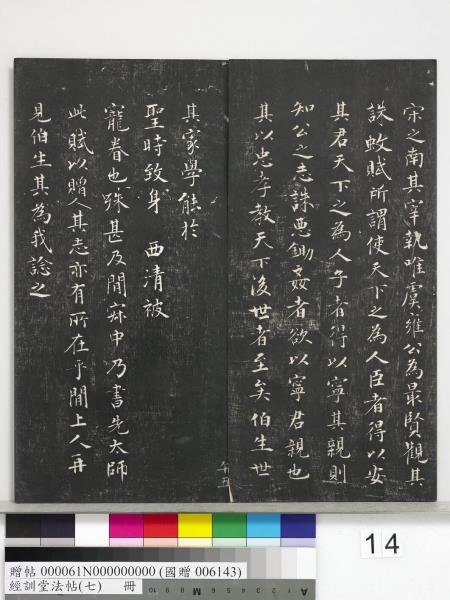 宋之南其宰執唯虞雍公為最賢觀其
誅蚊賦所謂使天下之為人臣者得以安
其君天下之為人子者得以寧其親則
知公之志誅惡鋤姦者欲以寧君親也
其以忠孝教天下後世者至矣伯生世
其家學能於
聖時致身 西清被
寵眷也殊甚及閒寂中乃書先太師
此賦以贈人其志亦有所在乎閒上人再
見伯生其為我諗之
十五
14
贈帖 000061N000000000 (國贈 006143)
經訓堂法帖(七) 冊